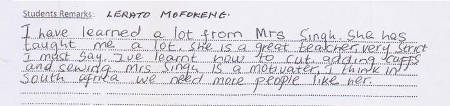 Students Remarks: LERATO MOFOKENG.
I have learned a lot from Mrs Singh. She has
taught me a lot. She is a great teacher, very strict
I most say. I've learnt how to cut, adding cuffs
and sewing. Mrs Singh is a motivater, I think in
South Africa we need more people like her.